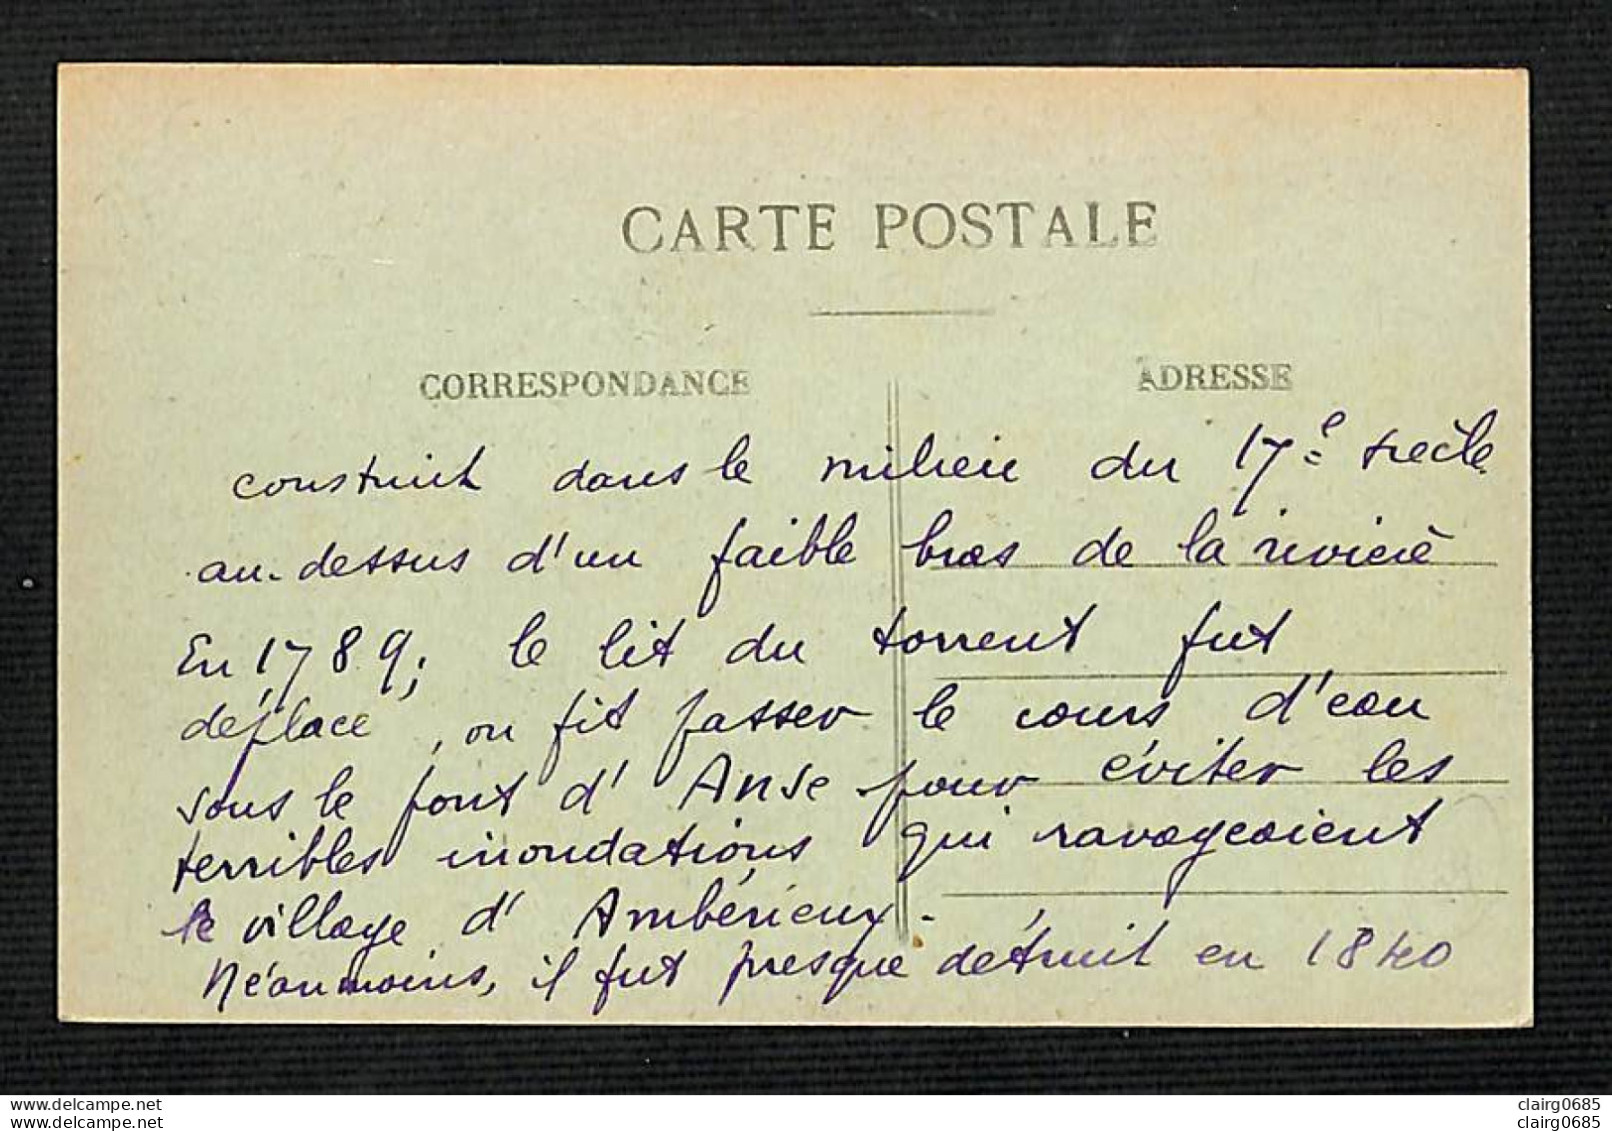 CARTE POSTALE
CORRESPONDANCE
ADRESSE
construit dans le milieu du 17e siècle
au-dessus d'un faible bras de la rivière
En 1789, le lit du torrent fut
déplacé, on fit passer le cours d'eau
sous le pont d'Anse pour éviter les
terribles inondations qui ravageaient
le village d'Ambérieux.
Néanmoins, il fut presque détruit en 1840
delcampe.net
delcampe.net
clairg0685
clairg0685